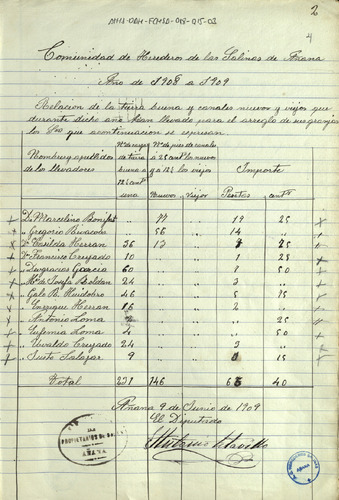 MHA-DAH-FCMSD-018-015-03
2
4
Comunidad de Herederos de las Salinas de Añana
Año de 1908 a 1909
Relacion de la tierra buena y canales nuevos y viejos que
durante dicho año han llevado para el arreglo de sus granjas
los Sres que acontinuacion se espresan.
Nombres y apellidos de los llevadores
de tierra buena a
Nº de pies de canales a 25 cent. los nuevos y a 12½ los viejos
Importe
una Nuevos Viejos Pesetas centms
Dn Marcelino Bonifat " 77 " 19 25
" Gregorio " 56 " 14 "
Dª Casilda Herran 36 13 " 25
Dn Francisco Cerezado 10 " " 1 25
" Deogracias Garcia 60 " " 50
Mª de Josefa Roldan 24 " " 3 "
" Galo R. Huidobro 46 " " 5 75
" Enrique Herran 16 " " 2 "
" Antonio Loma " " 25
" Eufemia Loma 4 " " " 50
" Osvaldo Cerezado 24 " " 3 "
" Justo Salazar 9 " " 15
Total 231 146 40
Añana 9 de Junio de 1909
El Diputado
PROPIETARIOS DE
AÑANA